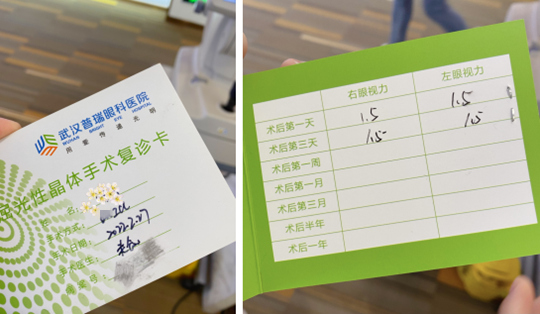 武汉普瑞眼科医院
WUHAN BRIGHT EYE HOSPITAL
用爱传递光明
屈光性晶体手术复诊卡
名:
方式:
术日期:
医生:
右眼视力 左眼视力
术后第一天 1.5 1.5
术后第三天 1.5 1.5
术后第一周
术后第一月
术后第三月
术后半年
术后一年